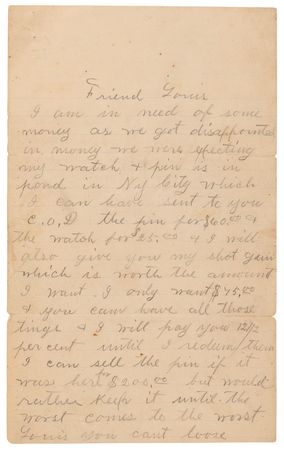 Friend Louis
I am in need of some
money as we got disappointed
in money we were expecting
my watch & pin is in
pond in N.Y City which
I can have sent to you
C.O.D the pin for $60.00 &
the watch for $25.00 & I will
also give you my shot gun
which is worth the amount
I want. I only want $45.00
& you can have all those
tings & I will pay you 12 1/2
per cent until I redeem them
I can sell the pin if it
was here for $200.00 but would
rather keep it until the
worst comes to the worst
Louis you cant loose